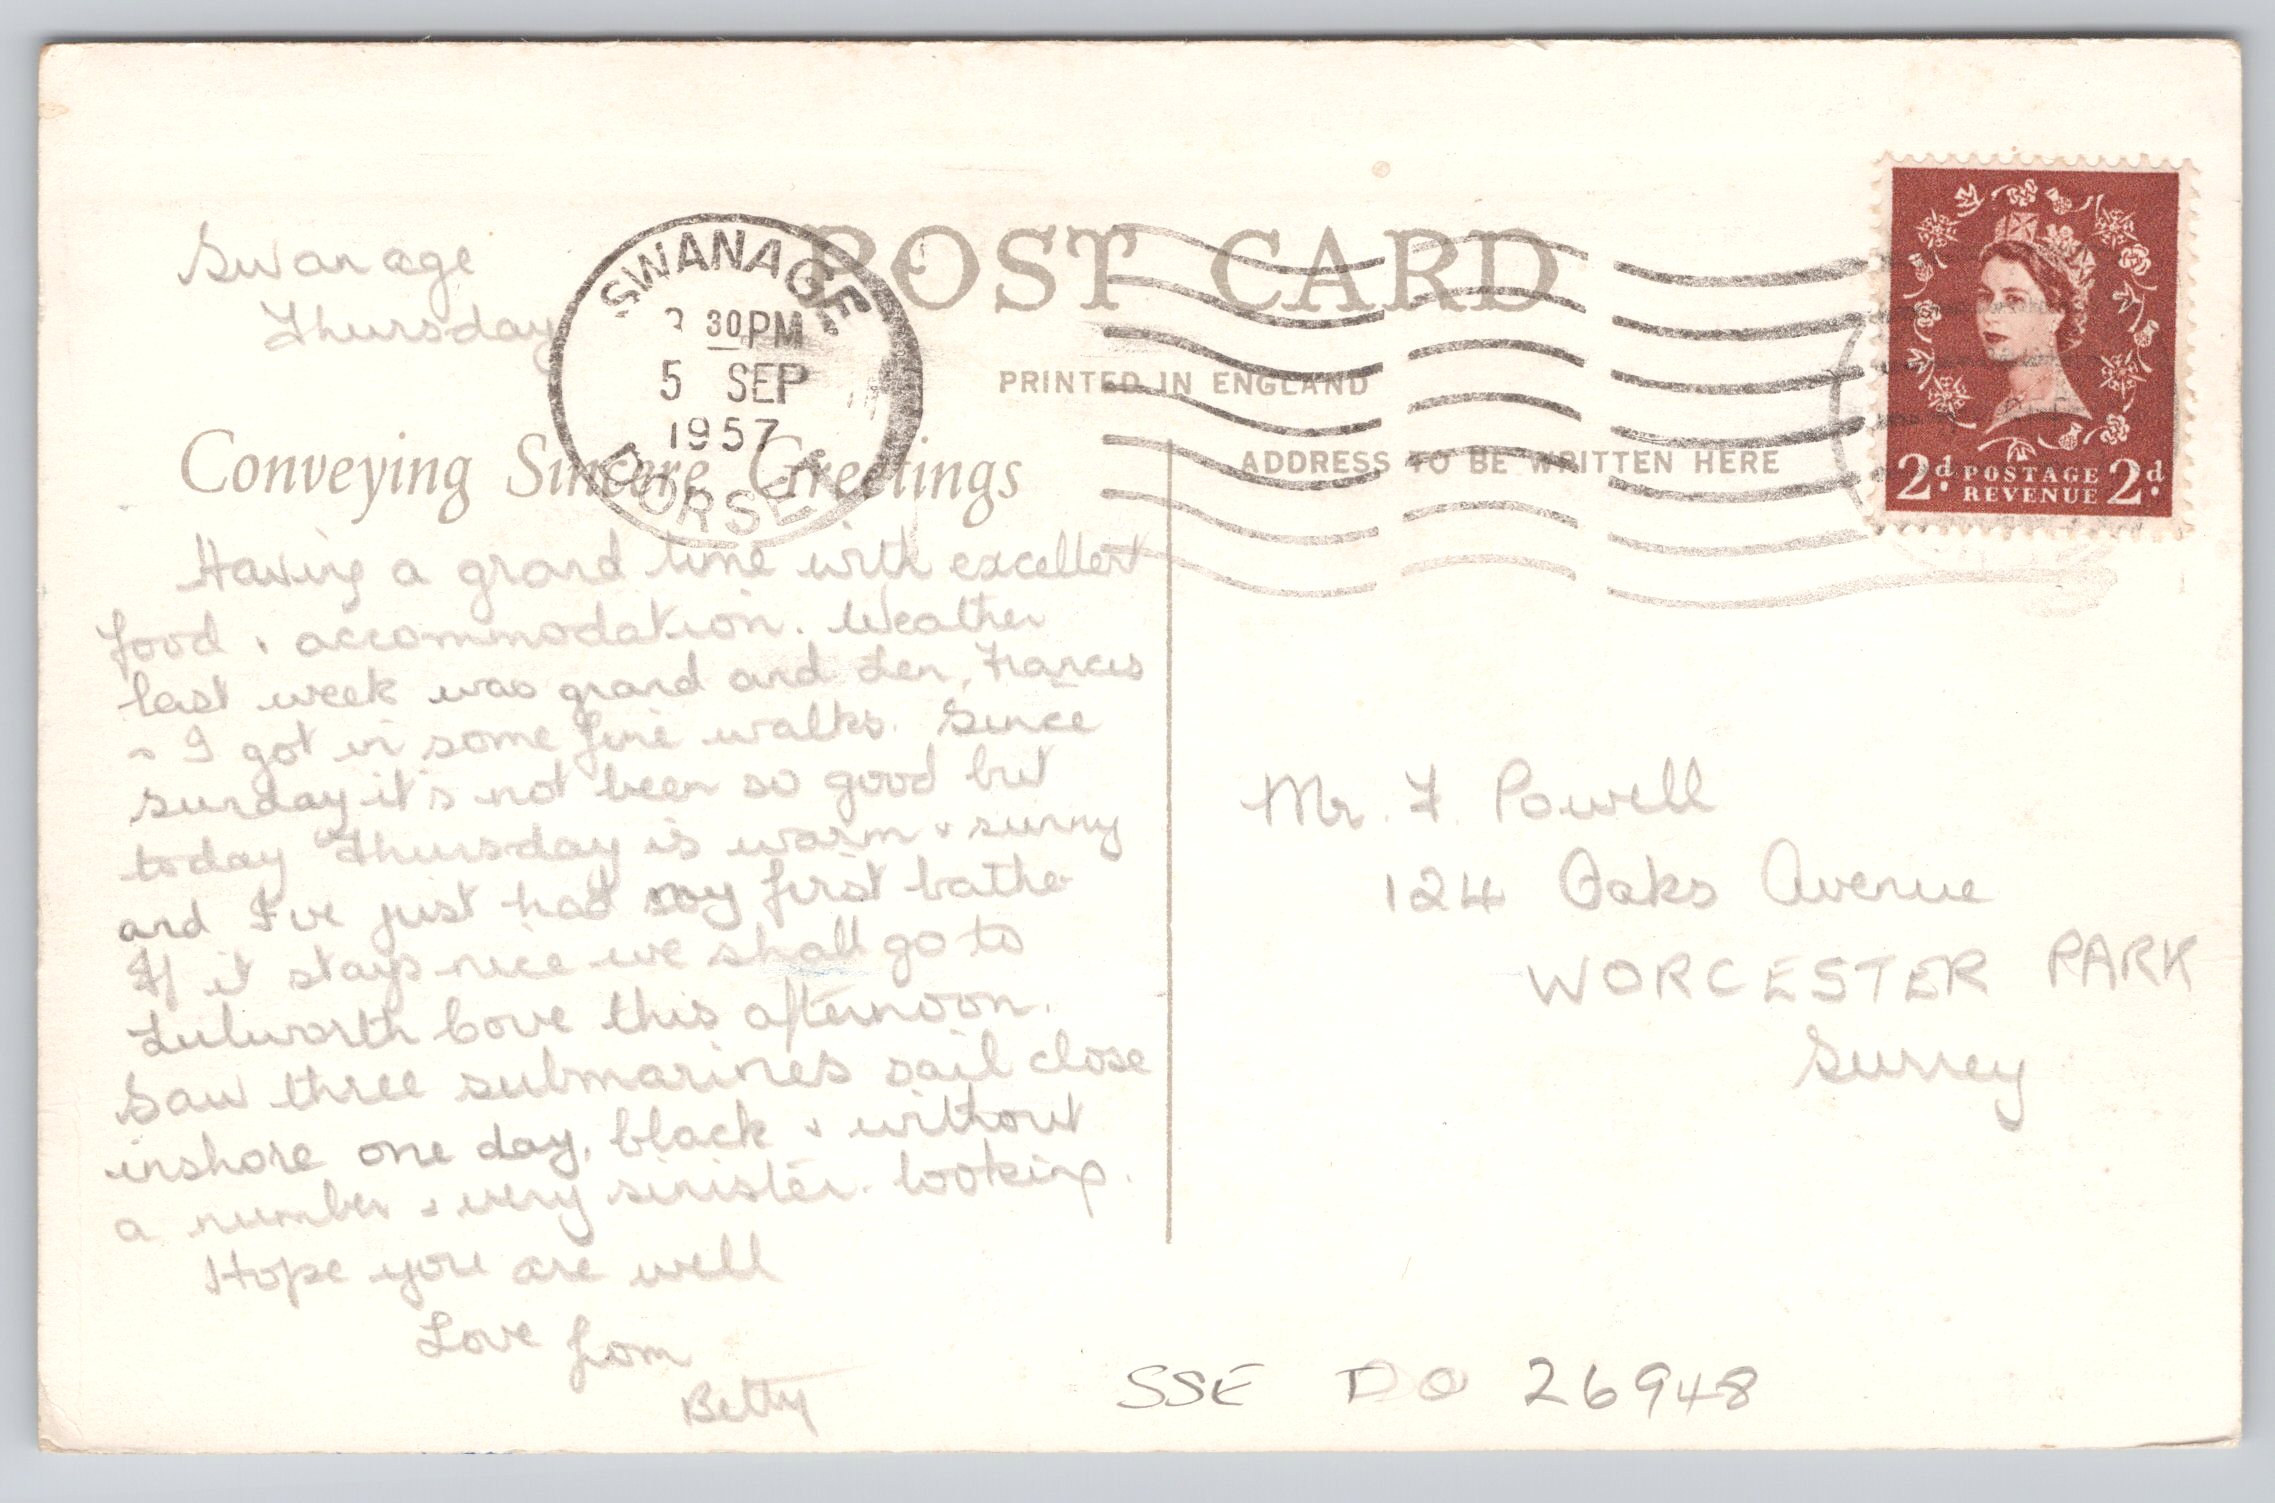 POST CARD
PRINTED IN ENGLAND
SWANAGE
30 PM
5 SEP
1957
DORSET
2d. POSTAGE 2d.
REVENUE
Swanage
Thursday
Conveying Sincere Greetings
Having a grand time with excellent
food & accommodation. Weather
last week was grand and Len, Francis
& I got in some fine walks. Since
Sunday it's not been so good but
today Thursday is warm & sunny
and I've just had my first bathe
If it stays nice we shall go to
Lulworth Cove this afternoon.
Saw three submarines sail close
inshore one day, black & without
a number & very sinister looking.
Hope you are well
Love from
Betty
ADDRESS TO BE WRITTEN HERE
Mr. F. Powell
124 Oaks Avenue
WORCESTER PARK
Surrey
SSE DO 26948